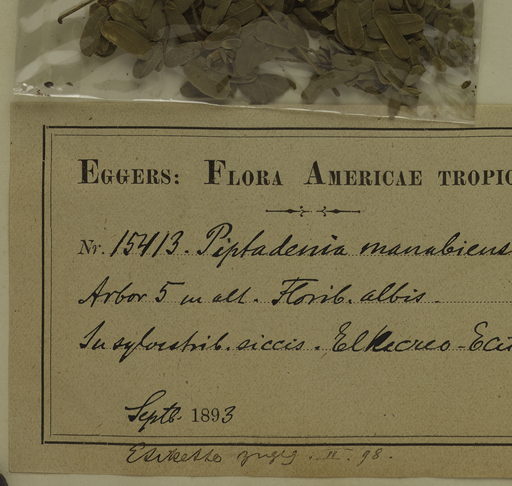 EGGERS: FLORA AMERICAE TROPIC
Nr. 15413. Piptadenia manabiens
Arbor 5 m alt. Florib. albis.
In sylvestrib. siccis. El Recreo - Ecu
Septb. 1893
II. 98.